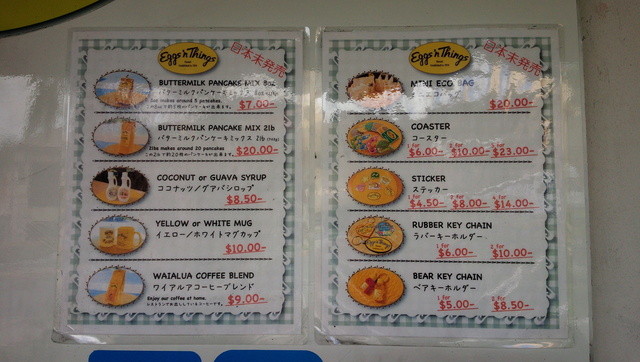 Eggs 'n Things
日本未発売
BUTTERMILK PANCAKE MIX 8oz
バターミルクパンケーキミックス 8oz
8oz makes around 5 pancakes.
$7.00-
BUTTERMILK PANCAKE MIX 2lb
バターミルクパンケーキミックス 2lb
2lbs makes around 20 pancakes
$20.00-
COCONUT or GUAVA SYRUP
ココナッツ/グアバシロップ
$8.50-
YELLOW or WHITE MUG
イエロー/ホワイトマグカップ
$10.00-
WAIALUA COFFEE BLEND
ワイアルアコーヒーブレンド
Enjoy our coffee at home.
$9.00-
Eggs 'n Things
日本未発売
MINI ECO BAG
$20.00-
COASTER
コースター
$6.00- $10.00- $23.00-
STICKER
ステッカー
$4.50- $8.00- $14.00-
RUBBER KEY CHAIN
ラバーキーホルダー
$6.00- $10.00-
BEAR KEY CHAIN
ベアキーホルダー
$5.00- $8.50-